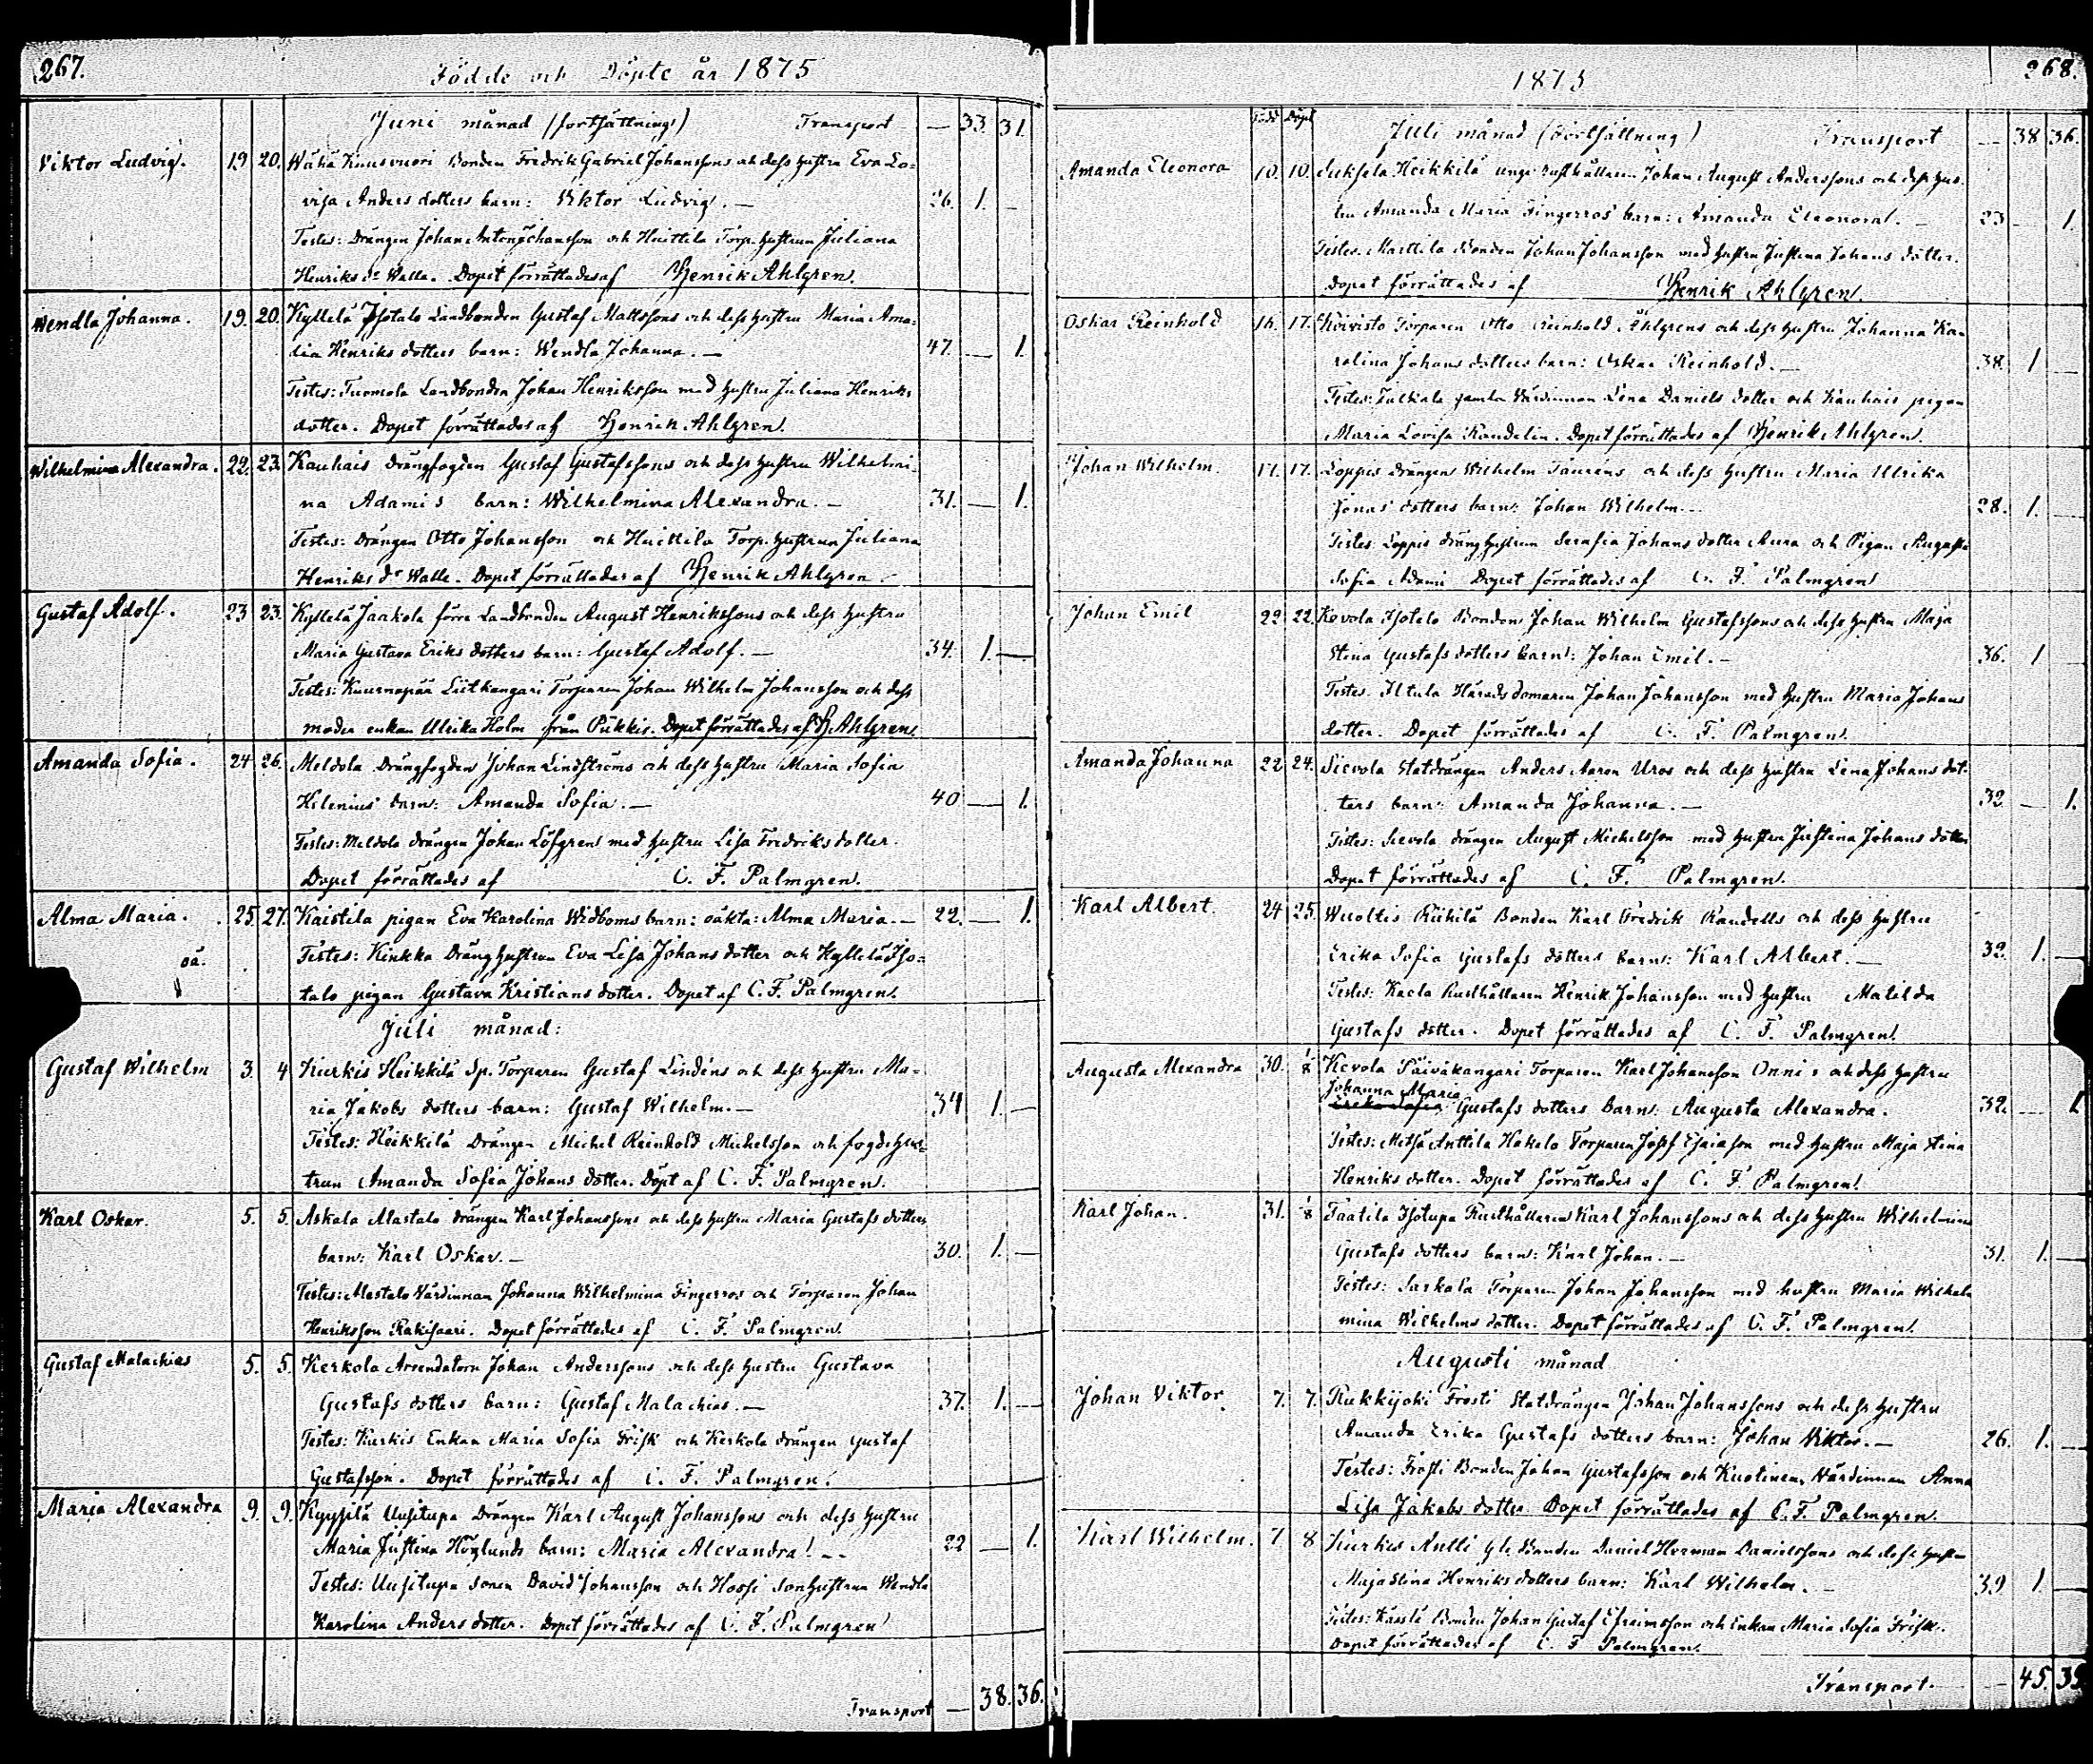 267.
Födde och Döpte år 1875
Juni månad (fortsättning) Transport — 33. 31.
Viktor Ludvig. 19 20. Wähä Knuusvuori Bonden Fredrik Gabriel Johanssons och dess hustru Eva Lo-
visa Anders dotters barn: Viktor Ludvig. — 26. 1. —
Testes: Drängen Johan Anton Johansson och Huittila Torp. hustrun Juliana
Henriks dr Walle. Dopet förrättades af Henrik Ahlgren.
Wendla Johanna. 19. 20. Kyllelä Isotalo Landbonden Gustaf Mattssons och dess hustru Maria Ama-
lia Henriks dotters barn: Wendla Johanna. — 47. — 1.
Testes: Tuomola Landbonden Johan Henriksson med hustru Juliana Henriks
dotter. Dopet förrättades af Henrik Ahlgren.
Wilhelmina Alexandra. 22. 23. Kauhais drängfogden Gustaf Gustafssons och dess hustru Wilhelmi-
na Adamis barn: Wilhelmina Alexandra. — 31. — 1.
Testes: Drängen Otto Johansson och Huittila Torp. hustrun Juliana
Henriks dr Walle. Dopet förrättades af Henrik Ahlgren.
Gustaf Adolf. 23 23. Kyllelä Jaakola förre Landbonden August Henrikssons och dess hustru
Maria Gustava Eriks dotters barn: Gustaf Adolf. — 34. 1. —
Testes: Knurnapää Liitkangari Torparen Johan Wilhelm Johansson och dess
moder enkan Ulrika Holm från Pikkis. Dopet förrättades af H. Ahlgren.
Amanda Sofia. 24 26. Meldola Drängfogden Johan Lindströms och dess hustru Maria Sofia
Helenius barn: Amanda Sofia. — 40 — 1.
Testes: Meldola drängen Johan Löfgren med hustru Lisa Fredriks dotter.
Dopet förrättades af C. F. Palmgren.
Alma Maria. 25. 27. Kaistila pigan Eva Karolina Widboms barn: oäkta: Alma Maria. — 22. — 1.
oä. Testes: Kinkka Dränghustrun Eva Lisa Johans dotter och Kyllelä Iso-
talo pigan Gustava Kristians dotter. Dopet af C. F. Palmgren.
Juli månad:
Gustaf Wilhelm 3. 4 Kurkis Heikkilä Sp. Torparen Gustaf Lindéns och dess hustru Ma-
ria Jakobs dotters barn: Gustaf Wilhelm. — 34 1. —
Testes: Heikkilä Drängen Michel Reinhold Michelsson och fogdehus-
trun Amanda Sofia Johans dotter. Döpt af C. F. Palmgren.
Karl Oskar. 5. 5. Askala Alastalo drängen Karl Johanssons och dess hustru Maria Gustafs dotters
barn: Karl Oskar. — 30. 1. —
Testes: Alastalo Värdinnan Johanna Wilhelmina Fingerroos och Torparen Johan
Henriksson Rakisaari. Dopet förrättades af C. F. Palmgren.
Gustaf Malachias 5. 5. Kerkola Arrendatorn Johan Anderssons och dess hustru Gustava
Gustafs dotters barn: Gustaf Malachias. — 37. 1. —
Testes: Kurkis Enkan Maria Sofia Frisk och Kerkola drängen Gustaf
Gustafsson. Dopet förrättades af C. F. Palmgren.
Maria Alexandra 9. 9. Kyysilä Uusitupa Drängen Karl August Johanssons och dess hustru
Maria Justina Höglunds barn: Maria Alexandra. — 22 — 1.
Testes: Uusitupa Sonen David Johansson och Hossi Sonhustrun Wendla
Karolina Anders dotter. Dopet förrättades af C. F. Palmgren
Transport — 38. 36.
1875 268.
Född Döpt Juli månad (fortsättning) Transport — 38 36.
Amanda Eleonora 10. 10. Suksela Heikkilä unge rusthållaren Johan August Anderssons och dess hus-
tru Amanda Maria Fingerroos barn: Amanda Eleonora. — 23 1.
Testes. Marttila Bonden Johan Johansson med hustru Justina Johans dotter.
Dopet förrättades af Henrik Ahlgren.
Oskar Reinhold 16. 17. Koivisto Torparen Otto Reinhold Ahlgrens och dess hustru Johanna Ka-
rolina Johans dotters barn: Oskar Reinhold. — 38. 1 —
Testes: gamla Värdinnan Lena Daniels dotter och Kauhais pigan
Maria Lovisa Randelin. Dopet förrättades af Henrik Ahlgren.
Johan Wilhelm. 17. 17. Loppis drängen Wilhelm Taurens och dess hustru Maria Ulrika
Jonas dotters barn: Johan Wilhelm. — 28. 1. —
Testes: Loppis dränghustrun Serafia Johans dotter Aura och Pigan Augusta
Sofia Adami Dopet förrättades af C. F. Palmgren
Johan Emil 22 22. Kevola Isotalo Bonden Johan Wilhelm Gustafssons och dess hustru Maja
Stina Gustafs dotters barn: Johan Emil. — 36. 1
Testes. Iltula Härads domaren Johan Johansson med hustru Maria Johans
dotter. Dopet förrättades af C. F. Palmgren.
Amanda Johanna 22 24. Sievola Statdrängen Anders Aaron Uros och dess hustru Lena Johans dot-
ters barn: Amanda Johanna. — 32 — 1.
Testes: Sievola drängen August Michelsson med hustru Justina Johans dotter
Dopet förrättades af C. F. Palmgren.
Karl Albert. 24 25. Wuoltis Riikilä Bonden Karl Fredrik Randells och dess hustru
Erika Sofia Gustafs dotters barn: Karl Albert. — 32. 1. —
Testes: Kaela Rusthållaren Henrik Johansson med hustru Matilda
Gustafs dotter. Dopet förrättades af C. F. Palmgren.
Augusta Alexandra 30. 1/8 Kevola Päiväkangari Torparen Karl Johansson Onnis och dess hustru
Johanna Maria
Erika Sofia Gustafs dotters barn: Augusta Alexandra. 32. — 1.
Testes: Metsä Anttila Torparen Josef Esaiason med hustru Maja Stina
Henriks dotter. Dopet förrättades af C. F. Palmgren.
Karl Johan. 31. 1/8 Taatila Isotupa Rusthållaren Karl Johanssons och dess hustru Wilhelmina
Gustafs dotters barn: Karl Johan. — 31. 1. —
Testes: Sarkola Torparen Johan Johansson med hustru Maria Wilhel-
mina Wilhelms dotter. Dopet förrättades af C. F. Palmgren.
Augusti månad
Johan Viktor. 7. 7. Rukkijoki Frosti Statdrängen Johan Johanssons och dess hustru
Amanda Erika Gustafs dotters barn: Johan Viktor. — 26. 1. —
Testes: Frosti Bonden Johan Gustafsson och Kuolinen Värdinnan Anna
Lisa Jakobs dotter. Dopet förrättades af C. F. Palmgren.
Karl Wilhelm. 7 8 Kurkis Antti gle Bonden Daniel Herman Danielssons och dess hustru
Maja Stina Henriks dotters barn: Karl Wilhelm. — 39 1. —
Testes: Kässlä Bonden Johan Gustaf Efraimsson och Enkan Maria Sofia Frisk.
Dopet förrättades af C. F. Palmgren.
Transport. — 45. 39